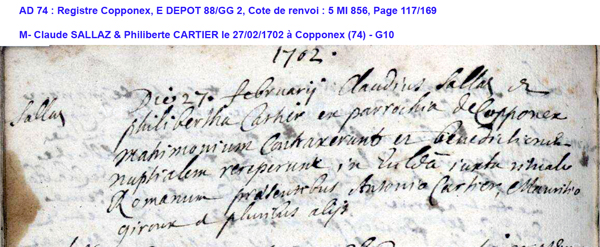 AD 74 : Registre Copponex, E DEPOT 88/GG 2, Cote de renvoi : 5 MI 856, Page 117/169
M- Claude SALLAZ & Philiberte CARTIER le 27/02/1702 à Copponex (74) - G10
1702.
Sallaz
Die 27. februarij Claudius Sallaz et
philibertha Cartier ex parrochia de Copponex
matrimonium contraxerunt et benedictionem
nuptialem receperunt in iuxta rituale
Romanum praesentibus Antonio Cartier, Mauritio
giroux et pluribus alijs